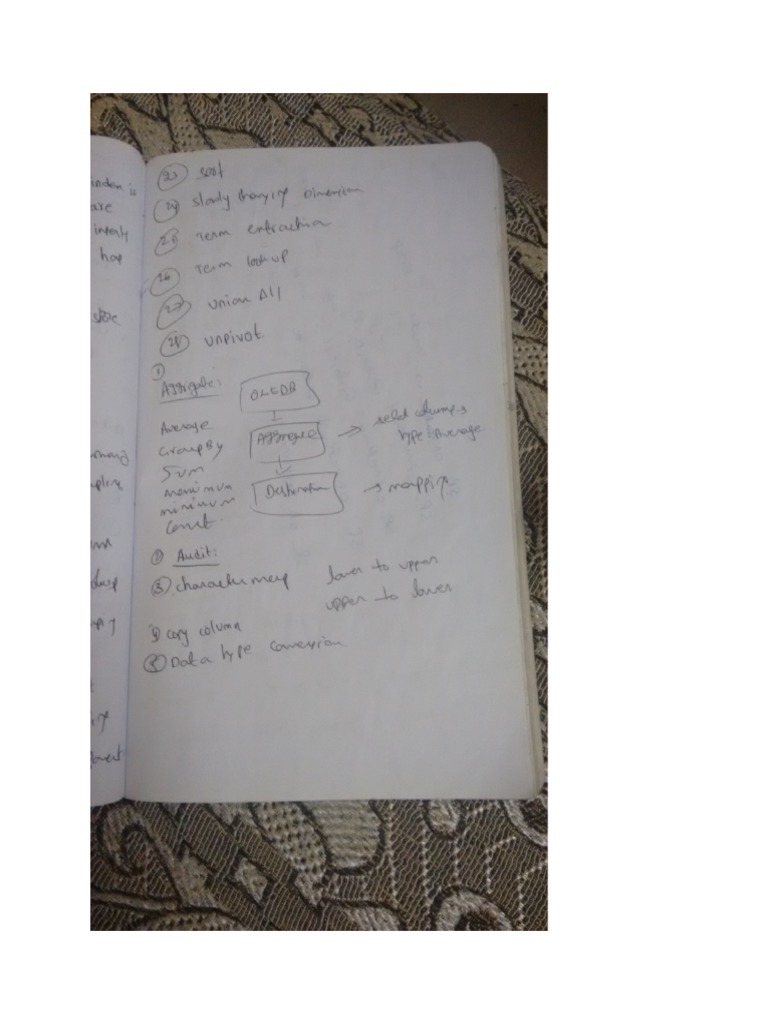 index is
are
hap
store
(23) sort
(24) slowly changing Dimension
(25) Term extraction
(26) Term lookup
(27) Union All
(28) Unpivot.
(1)
Aggregate:
OLEDB
Average
Group By
Aggregate → select columns
type: Average
Sum
Maximum
Destination → mapping
minimum
Count
(2) Audit:
(3) character map lower to upper
upper to lower
(4) copy column
(5) Data type conversion